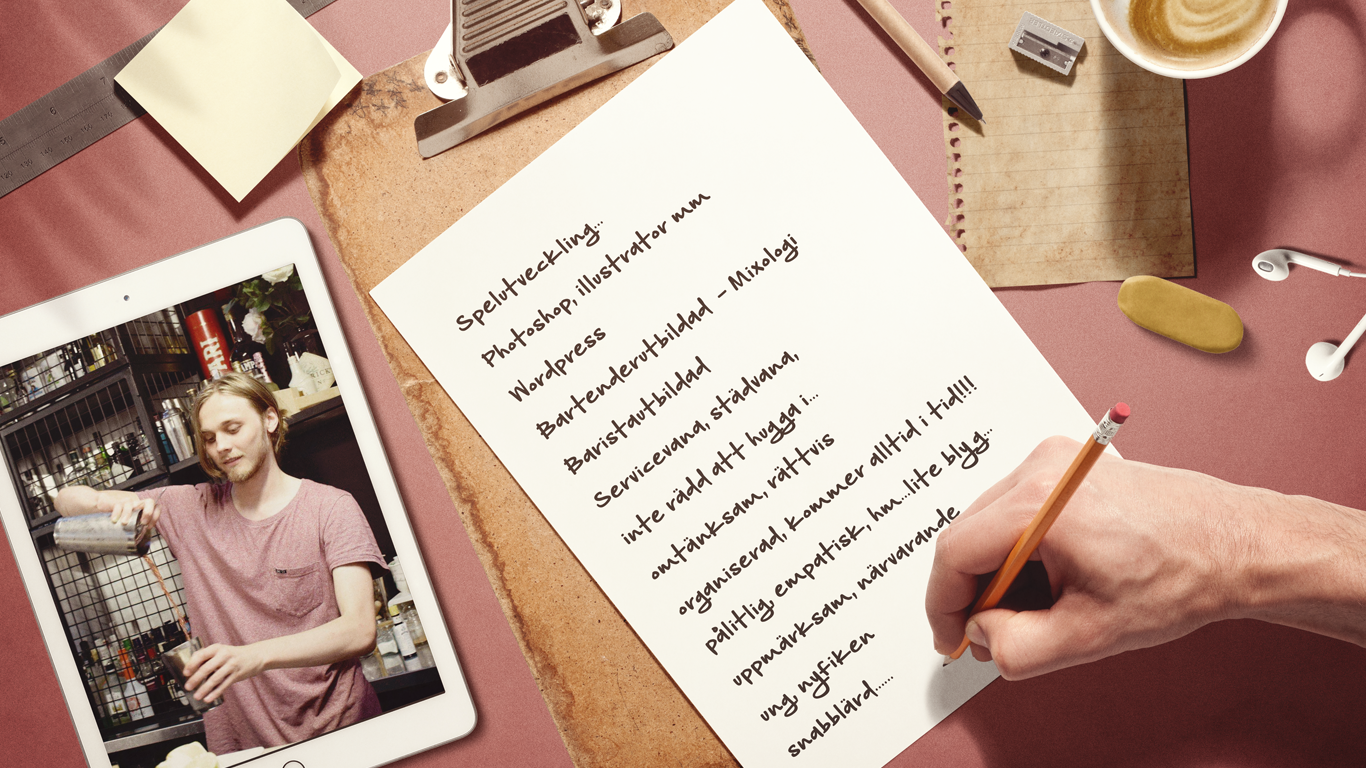 Spelutveckling..
Photoshop, illustrator mm
Wordpress
Bartenderutbildad - Mixologi
Baristautbildad
Servicevana, städvana,
inte rädd att hugga i...
omtänksam, rättvis
organiserad, kommer alltid i tid!!!
pålitlig, empatisk, hm...lite blyg...
uppmärksam, närvarande
ung, nyfiken
snabblärd.....